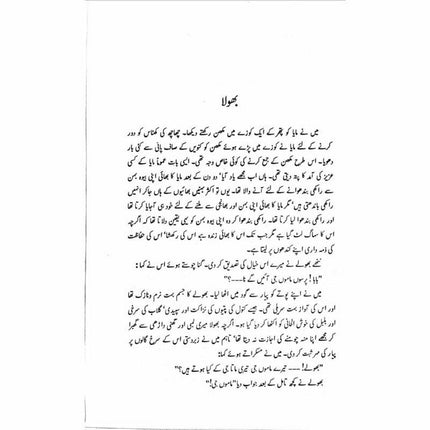 بھولا
میں نے مایا کو پتھر کے ایک کوزے میں مکھن رکھتے دیکھا۔ چھاچھ کی کھٹاس کو دور
کرنے کے لئے مایا نے کوزے میں پڑے ہوئے مکھن کو کنویں کے صاف پانی سے کئی بار
دھویا۔ اس طرح مکھن کے جمع کرنے کی کوئی خاص وجہ تھی۔ ایسی بات عموماً مایا کے کسی
عزیز کی آمد کا پتہ دیتی تھی۔ ہاں اب مجھے یاد آیا، دو دن کے بعد مایا کا بھائی اپنی بیوہ بہن
سے راکھی بندھوانے کے لئے آنے والا تھا۔ یوں تو اکثر بہنیں بھائیوں کے ہاں جا کر انہیں
راکھی باندھتی ہیں مگر مایا کا بھائی اپنی بہن اور بھانجے سے ملنے کے لئے خود ہی آجایا کرتا تھا
اور راکھی بندھوا لیا کرتا تھا۔ راکھی بندھوا کر وہ اپنی بیوہ بہن کو یہی یقین دلاتا تھا کہ اگرچہ
اس کا سہاگ لٹ گیا ہے مگر جب تک اس کا بھائی زندہ ہے اس کی رکھشا، اس کی حفاظت
کی ذمہ داری اپنے کندھوں پر لیتا ہے۔
ننھے بھولے نے میرے اس خیال کی تصدیق کر دی۔ گنا چوستے ہوئے اس نے کہا:
"بابا! پرسوں ماموں جی آئیں گے نا۔۔۔؟"
میں نے اپنے پوتے کو پیار سے گود میں اٹھا لیا۔ بھولے کا جسم بہت نرم و نازک تھا
اور اس کی آواز بہت سریلی تھی۔ جیسے کنول کی پتیوں کی نزاکت اور سپیدی، گلاب کی سرخی
اور بلبل کی خوش الحانی کو اکٹھا کر دیا گیا ہو۔ اگرچہ بھولا میری لمبی اور گھنی داڑھی سے گھبرا
کر مجھے اپنا منہ چومنے کی اجازت نہ دیتا تھا، تاہم میں نے زبردستی اس کے سرخ گالوں پر
پیار کی مہر ثبت کر دی۔ میں نے مسکراتے ہوئے کہا:
"بھولے! ۔۔۔ تیرے ماموں جی تیری ماتا جی کے کیا ہوتے ہیں؟"
بھولے نے کچھ تامل کے بعد جواب دیا "ماموں جی!"